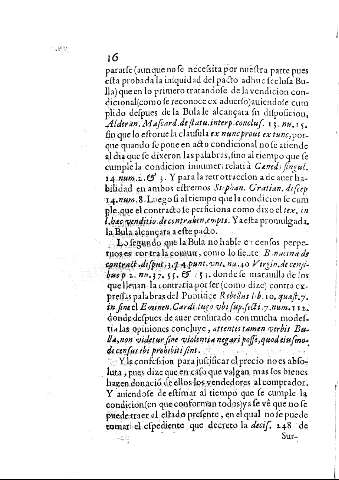 16
pararse (aunque no se necessita por nuestra parte pues
esta probada la iniquidad del pacto adhuc seclusa Bu-
lla) que en lo primero tratandose de la vendicion con-
dicional (como se reconoce ex adverso) auiendose cum
plido despues de la Bula le alcançara su disposicion,
Alderan. Mascard. de statu. interp. conclus. 13. nu. 15.
sin que lo estorue la clausula ex nunc prout ex tunc, por-
que quando se pone en acto condicional no se atiende
al dia que se dixeron las palabras, sino al tiempo que se
cumple la condicion innumeri relati à singul.
14. num. 2. & 3. Y para la retrotraccion à de auer ha-
bilidad en ambos estremos Stephan. Gratian. discep
14. num. 8. Luego si al tiempo que la condicion se cum
ple, que el contracto se perficiona como dixo el tex. in
l. hæc venditio de contrahen. empt. Y esta promulgada,
la Bula alcançara a este pacto.
Lo segundo que la Bula no hable en censos perpe-
tuos es contra la comun, como lo siente Bonacina de
contract. disput. 3. q. 4. punt. vni. nu. 40 Virgin. de cens
bus p 2. nu. 37. 55. & 151. donde se marauilla de los
que lleuan la contraria por ser (como dize) contra ex-
pressas palabras del Pontifice Rebellus lib. 10. quæst. 7.
in fine el Eminen. Card. Lugo vbi sup. secti. 7. num. 112.
donde despues de auer censurado con mucha modes-
tia las opiniones concluye, attentis tamen verbis Bu-
llæ, non videtur sine violentia negari posse, quod eiusmo-
di census ibi prohibiti sint.
Y la confession para justificar el precio no es abso-
luta, pues dize que en caso que valgan mas los bienes
hagen donació de ellos los vendedores al comprador.
Y auiendose de estimar al tiempo que se cumple la
condicion (en que conforman todos) ya se vè que no se
puede traer al estado presente, en el qual no se puede
tomar el espediente que decreto la decis. 248 de
Sur-